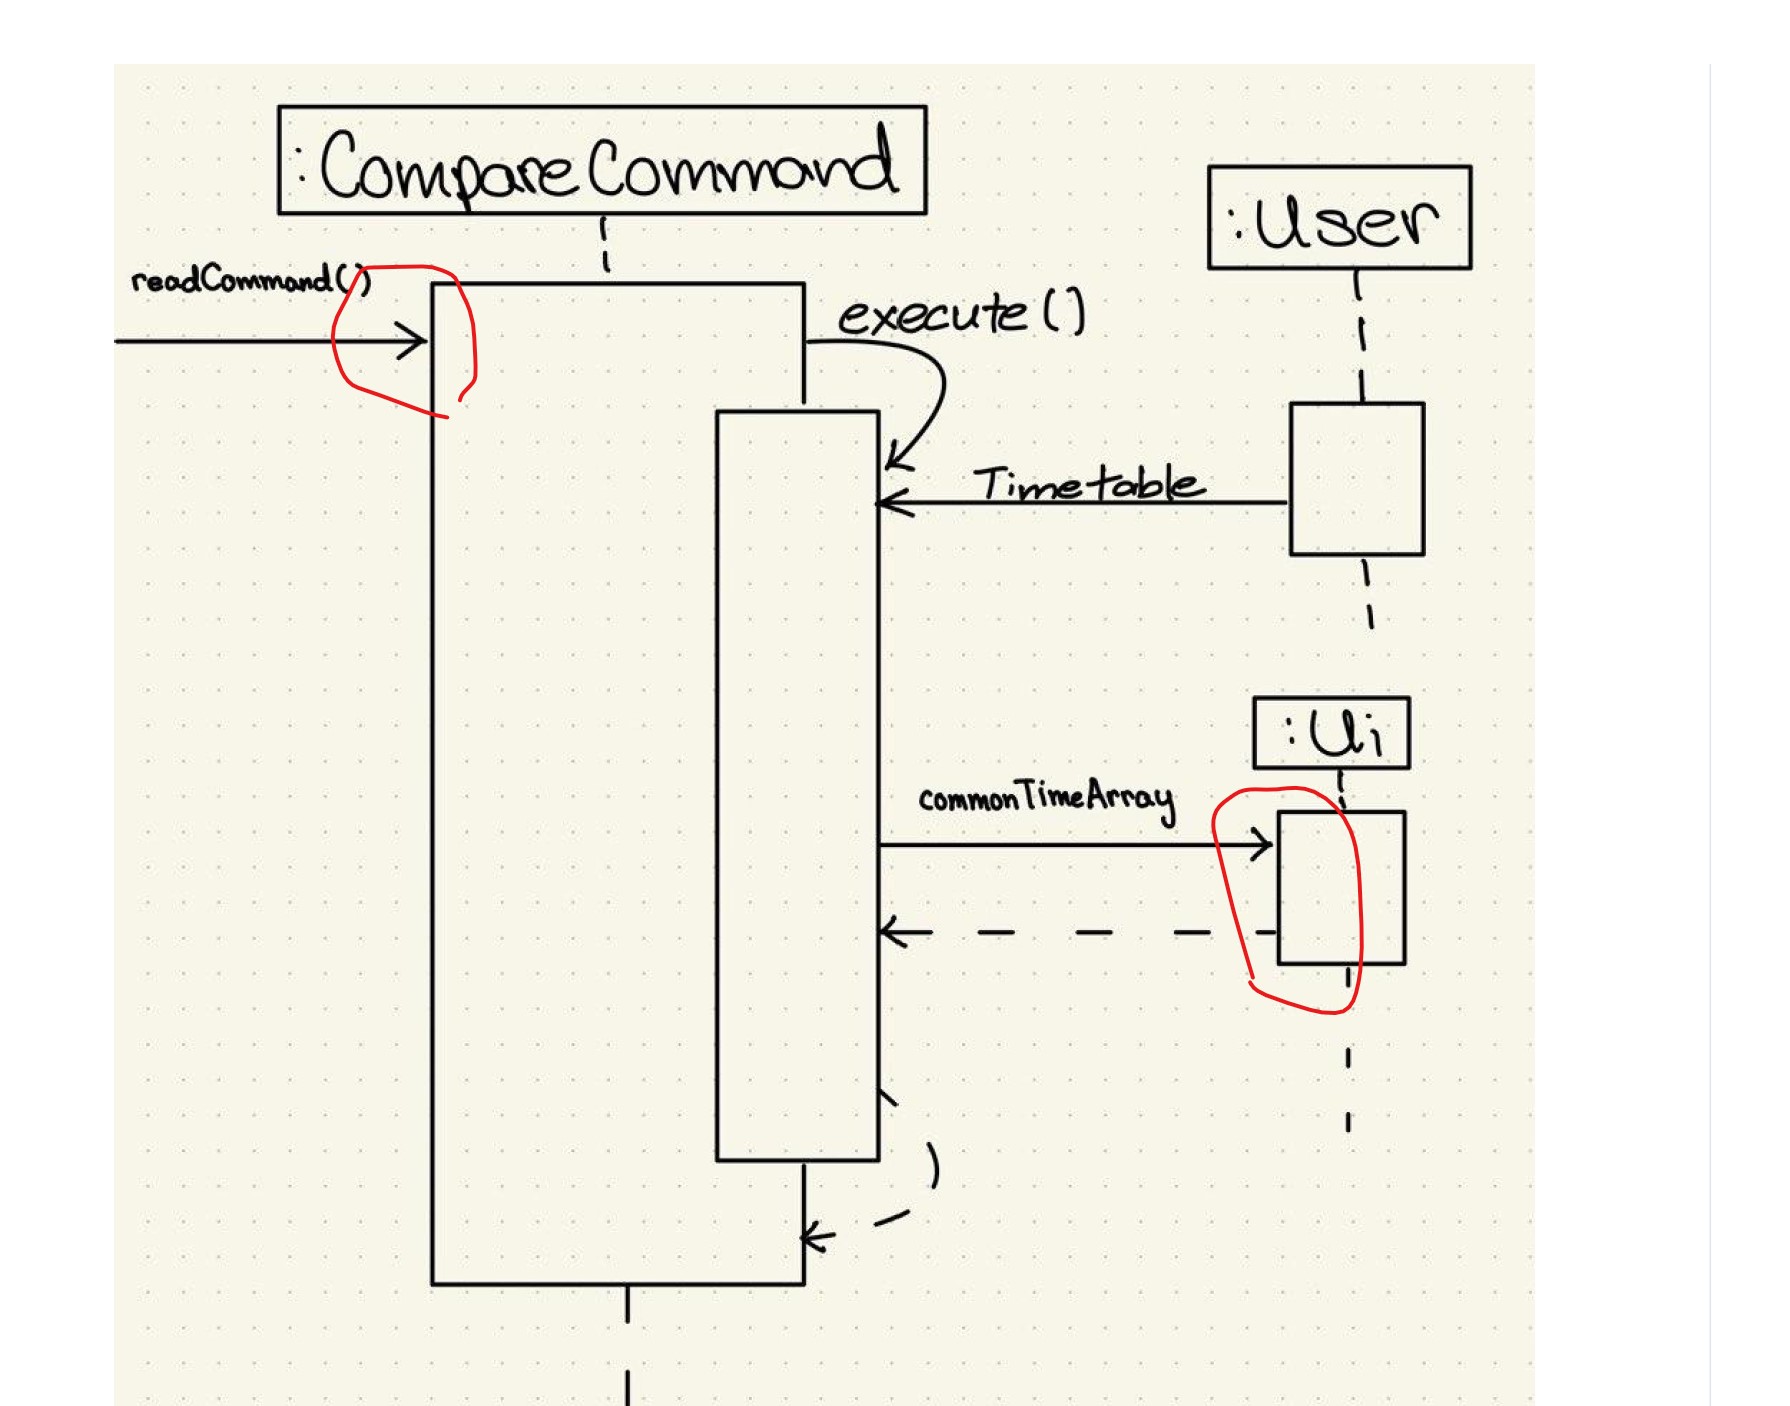 :CompareCommand
:User
readCommand()
execute()
Timetable
:Ui
commonTimeArray